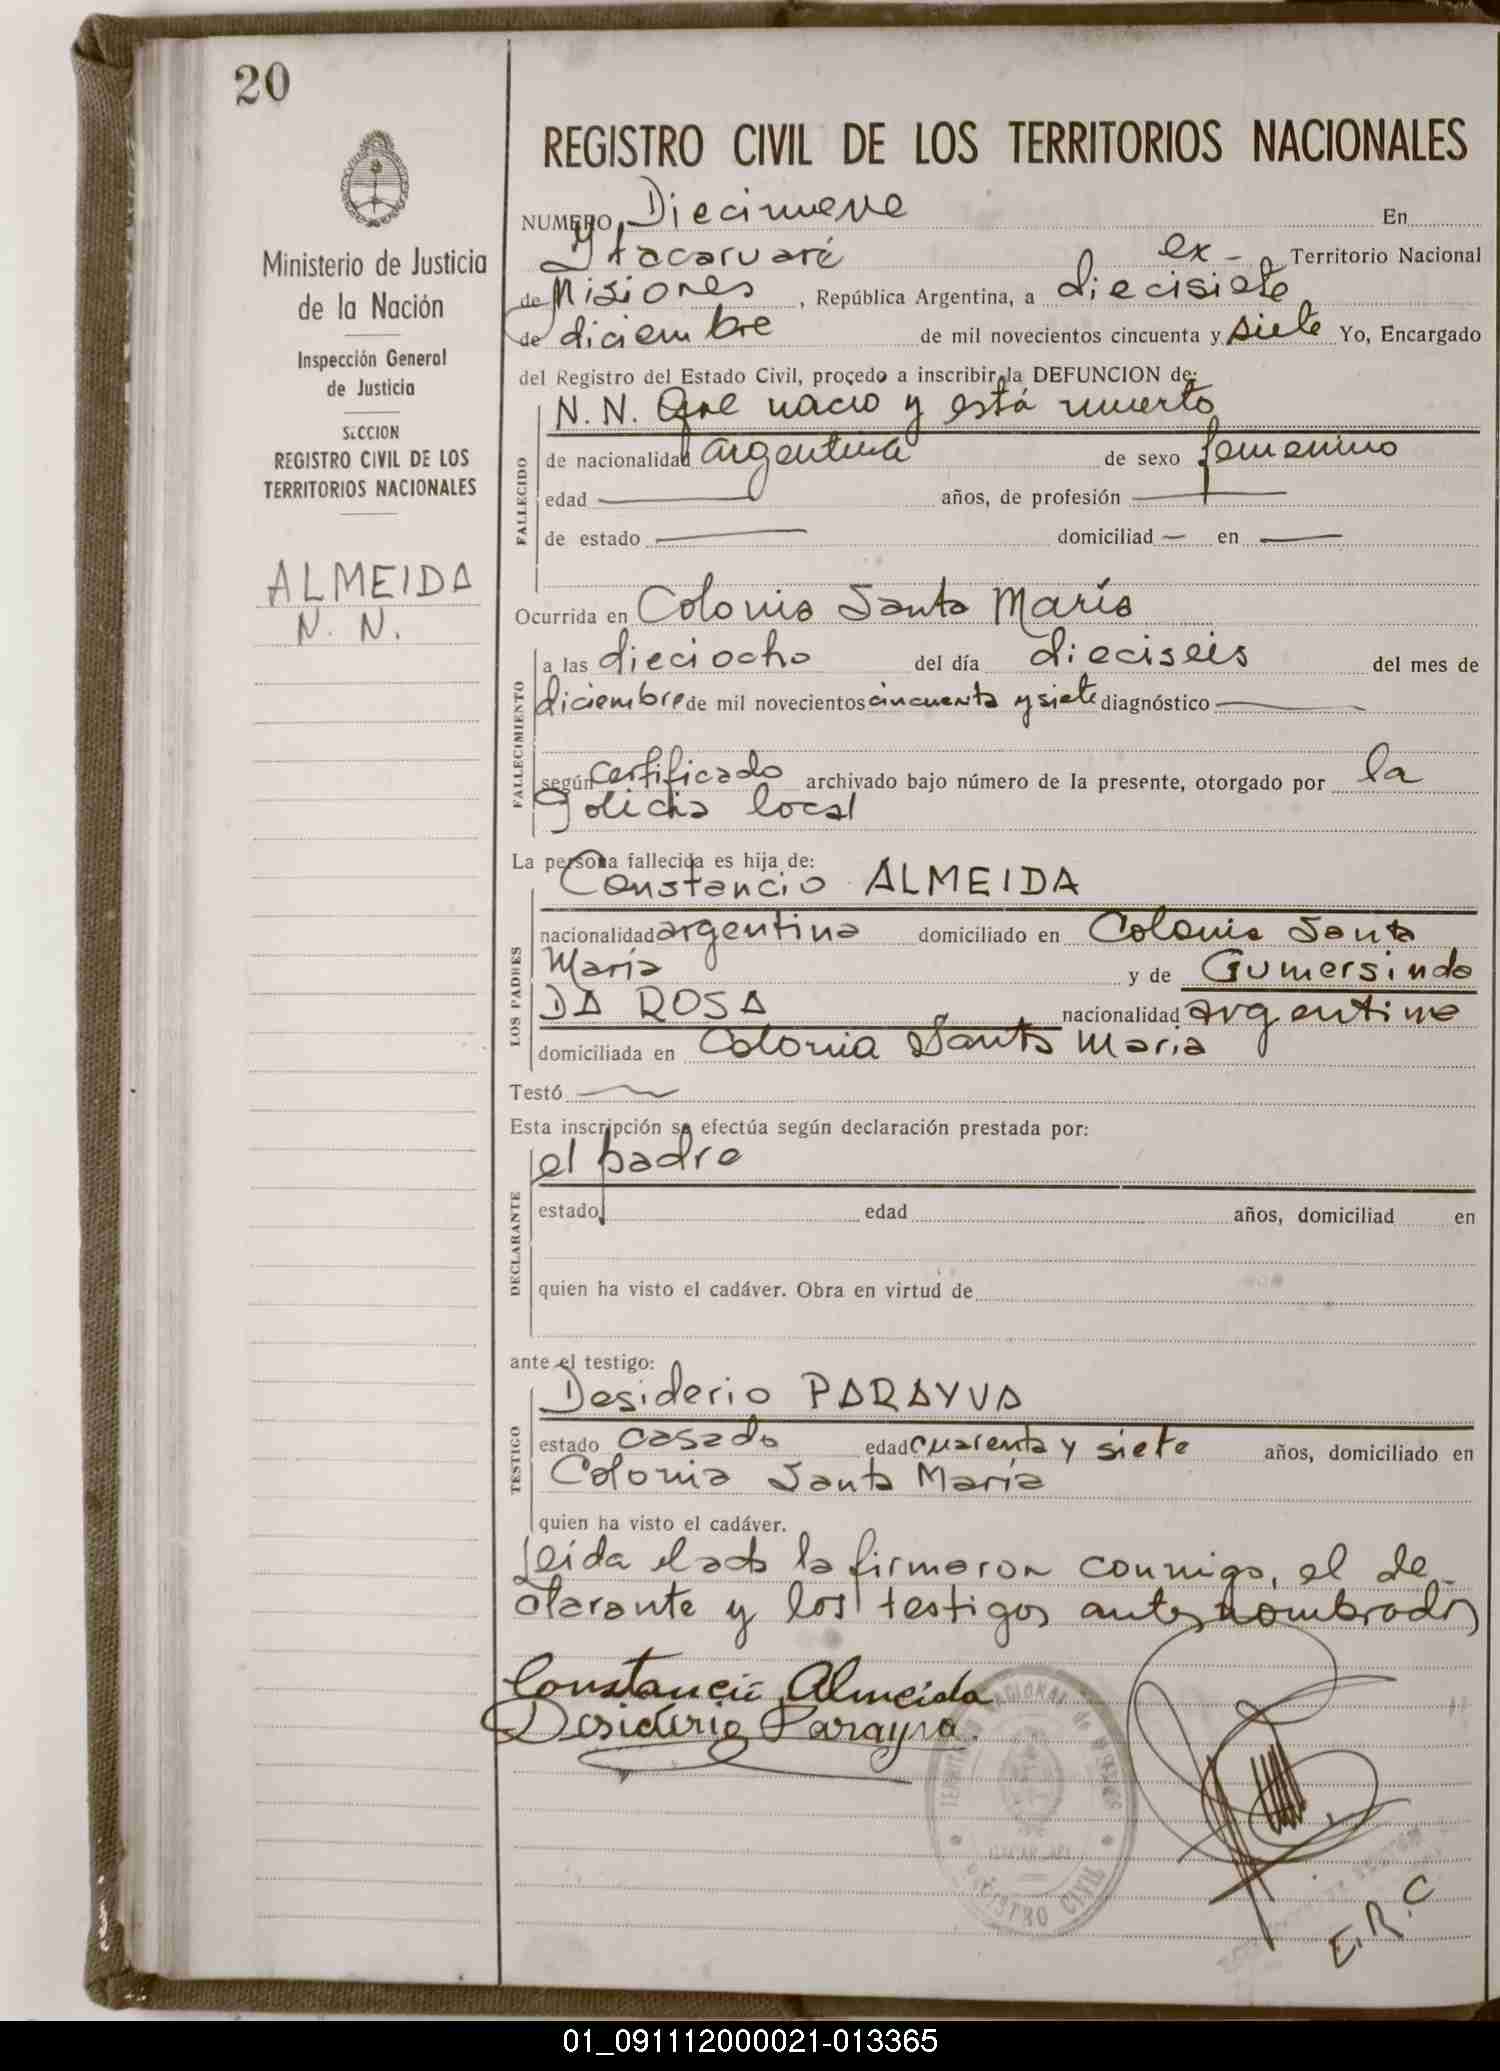 20
Ministerio de Justicia
de la Nación
Inspección General
de Justicia
SECCION
REGISTRO CIVIL DE LOS
TERRITORIOS NACIONALES
ALMEIDA
N. N.
REGISTRO CIVIL DE LOS TERRITORIOS NACIONALES
NUMERO Diecinueve En
Ytacaruaré ex- Territorio Nacional
de Misiones, República Argentina, a diecisiete
de diciembre de mil novecientos cincuenta y siete Yo, Encargado
del Registro del Estado Civil, procedo a inscribir la DEFUNCION de:
N. N. Que nacio y está muerto
FALLECIDO
de nacionalidad argentina de sexo femenino
edad años, de profesión
de estado domiciliad en
Ocurrida en Colonia Santa María
FALLECIMIENTO
a las dieciocho del día dieciseis del mes de
diciembre de mil novecientos cincuenta y siete diagnóstico
según certificado archivado bajo número de la presente, otorgado por la
Policia local
La persona fallecida es hija de:
LOS PADRES
Constancio ALMEIDA
nacionalidad argentina domiciliado en Colonia Santa
María y de Gumersinda
DA ROSA nacionalidad argentina
domiciliada en Colonia Santa Maria
Testó
Esta inscripción se efectúa según declaración prestada por:
DECLARANTE
el padre
estado edad años, domiciliad en
quien ha visto el cadáver. Obra en virtud de
ante el testigo:
TESTIGO
Desiderio PARAYVA
estado casado edad cuarenta y siete años, domiciliado en
Colonia Santa María
quien ha visto el cadáver.
Leida el acta la firmaron conmigo, el de-
clarante y los testigos antes nombrados
Constancio Almeida
Desiderio Parayva.
REGISTRO CIVIL
E.R.C
01_091112000021-013365